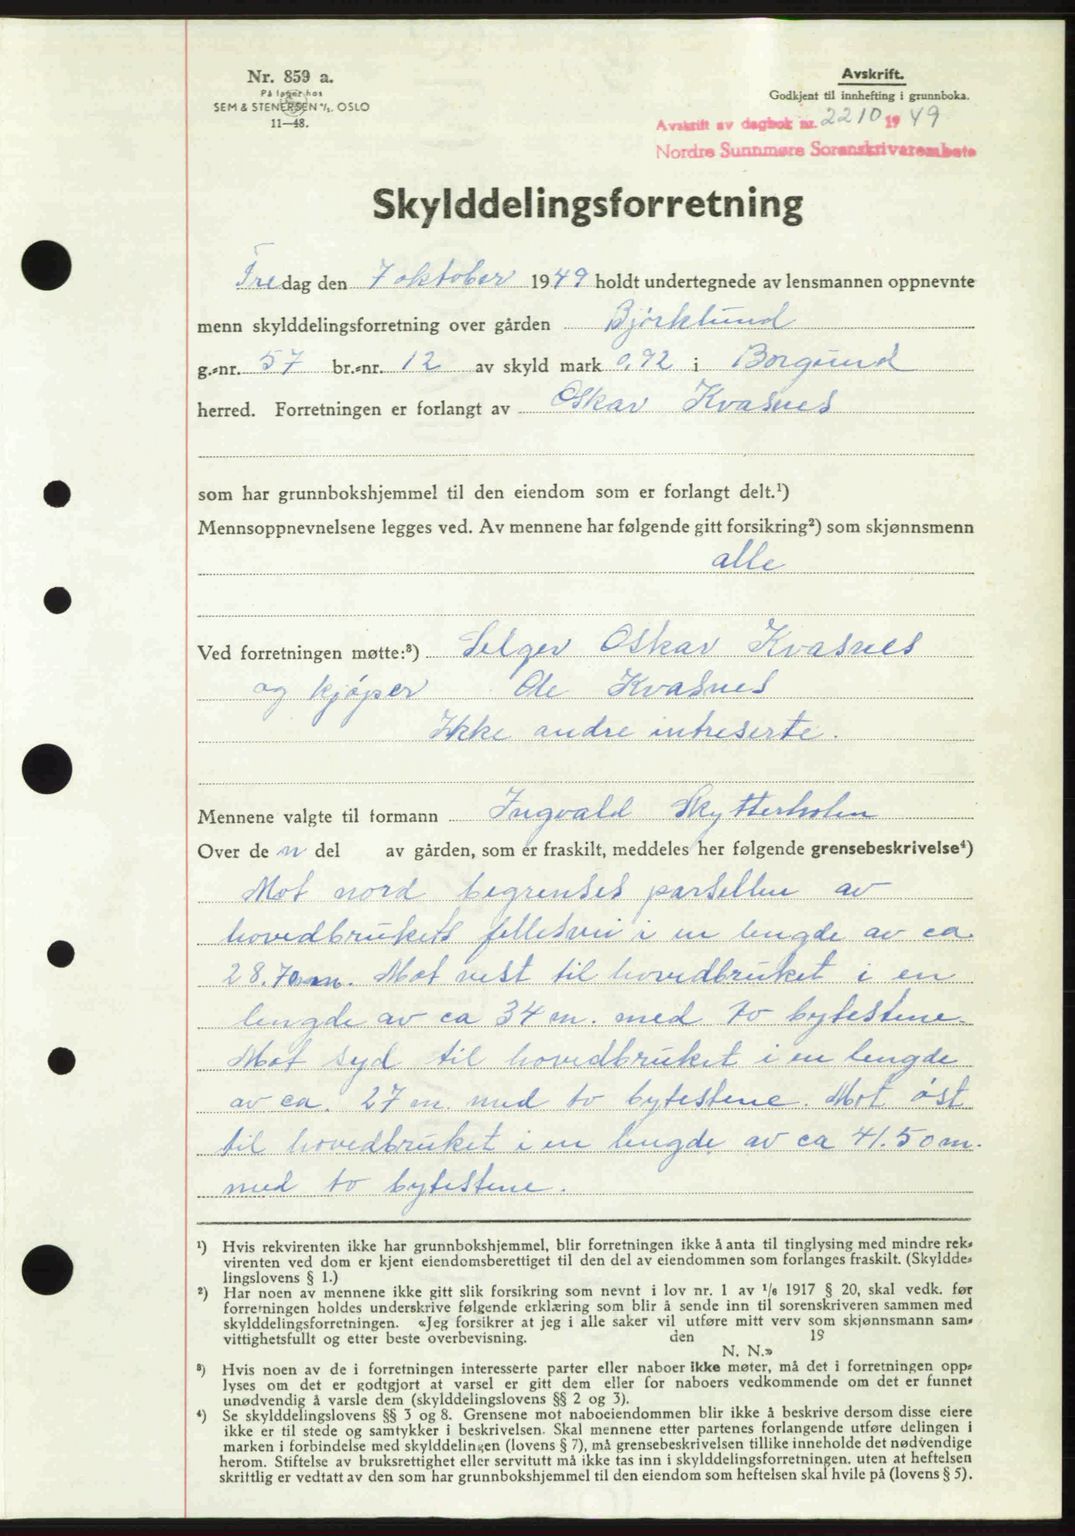 Nr. 859 a.
På lager hos
SEM & STENERSEN A/S, OSLO
11—48.
Avskrift.
Godkjent til innhefting i grunnboka.
Avskrift av dagbok nr. 2210 1949
Nordre Sunnmøre Sorenskrivarembete
Skylddelingsforretning
Fredag den 7 oktober 1949 holdt undertegnede av lensmannen oppnevnte
menn skylddelingsforretning over gården Björklund
g.-nr. 57 br.-nr. 12 av skyld mark 0,92 i Borgund
herred. Forretningen er forlangt av Oskar Kvasnes
som har grunnbokshjemmel til den eiendom som er forlangt delt.¹)
Mennsoppnevnelsene legges ved. Av mennene har følgende gitt forsikring²) som skjønnsmenn
alle
Ved forretningen møtte:³) Selger Oskar Kvasnes
og kjøper Ole Kvasnes
Ikke andre intreserte.
Mennene valgte til formann Ingvald Skytterholm
Over de n del av gården, som er fraskilt, meddeles her følgende grensebeskrivelse⁴)
Mot nord begrenses parsellen av
hovedbrukets fellesvei i en lengde av ca.
28.70 m. Mot vest til hovedbruket i en
lengde av ca 34 m. med to bytestene.
Mot syd til hovedbruket i en lengde
av ca. 27 m. med to bytestene. Mot öst
til hovedbruket i en lengde av ca 41.50 m.
med to bytestene.
¹) Hvis rekvirenten ikke har grunnbokshjemmel, blir forretningen ikke å anta til tinglysing med mindre rek-
virenten ved dom er kjent eiendomsberettiget til den del av eiendommen som forlanges fraskilt. (Skyldde-
lingslovens § 1.)
²) Har noen av mennene ikke gitt slik forsikring som nevnt i lov nr. 1 av ¹/₆ 1917 § 20, skal vedk. før
forretningen holdes underskrive følgende erklæring som blir å sende inn til sorenskriveren sammen med
skylddelingsforretningen. «Jeg forsikrer at jeg i alle saker vil utføre mitt verv som skjønnsmann sam-
vittighetsfullt og etter beste overbevisning. den 19
N. N.»
³) Hvis noen av de i forretningen interesserte parter eller naboer ikke møter, må det i forretningen opp-
lyses om det er godtgjort at varsel er gitt dem eller for naboers vedkommende om det er funnet
unødvendig å varsle dem (skylddelingslovens §§ 2 og 3).
⁴) Se skylddelingslovens §§ 3 og 8. Grensene mot naboeiendommen blir ikke å beskrive dersom disse eiere
ikke er til stede og samtykker i beskrivelsen. Skal mennene etter partenes forlangende utføre delingen i
marken i forbindelse med skylddelingen (lovens § 7), må grensebeskrivelsen tillike inneholde det nødvendige
herom. Stiftelse av bruksrettighet eller servitutt må ikke tas inn i skylddelingsforretningen, uten at heftelsen
skriftlig er vedtatt av den som har grunnbokshjemmel til den eiendom som heftelsen skal hvile på (lovens § 5).